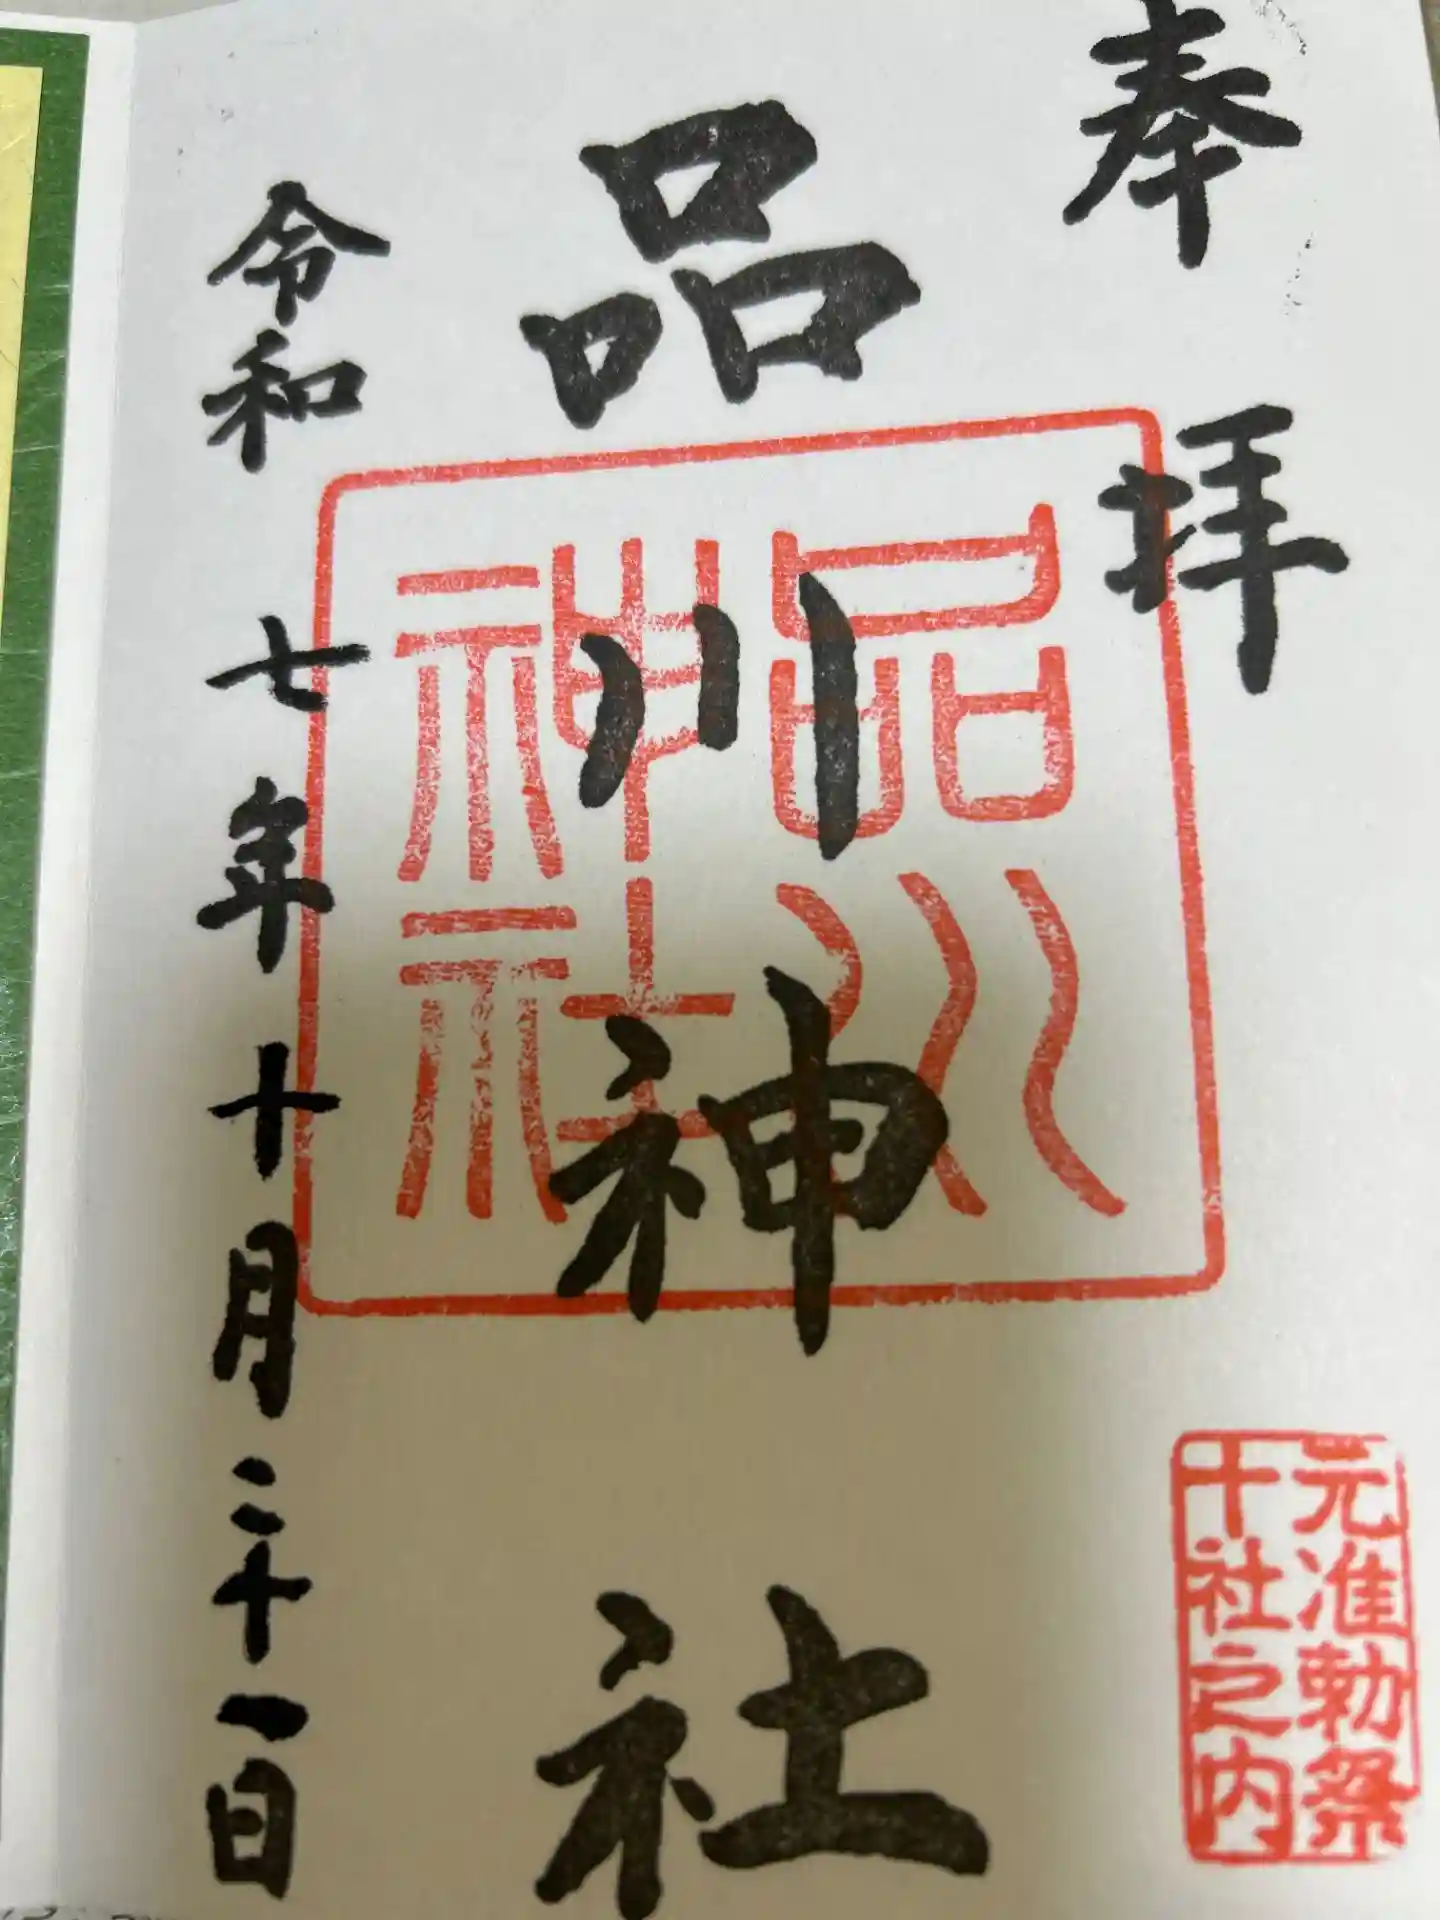 奉拝
品川神社
品川
神社
元准勅祭
十社之内
令和七年十月二十一日